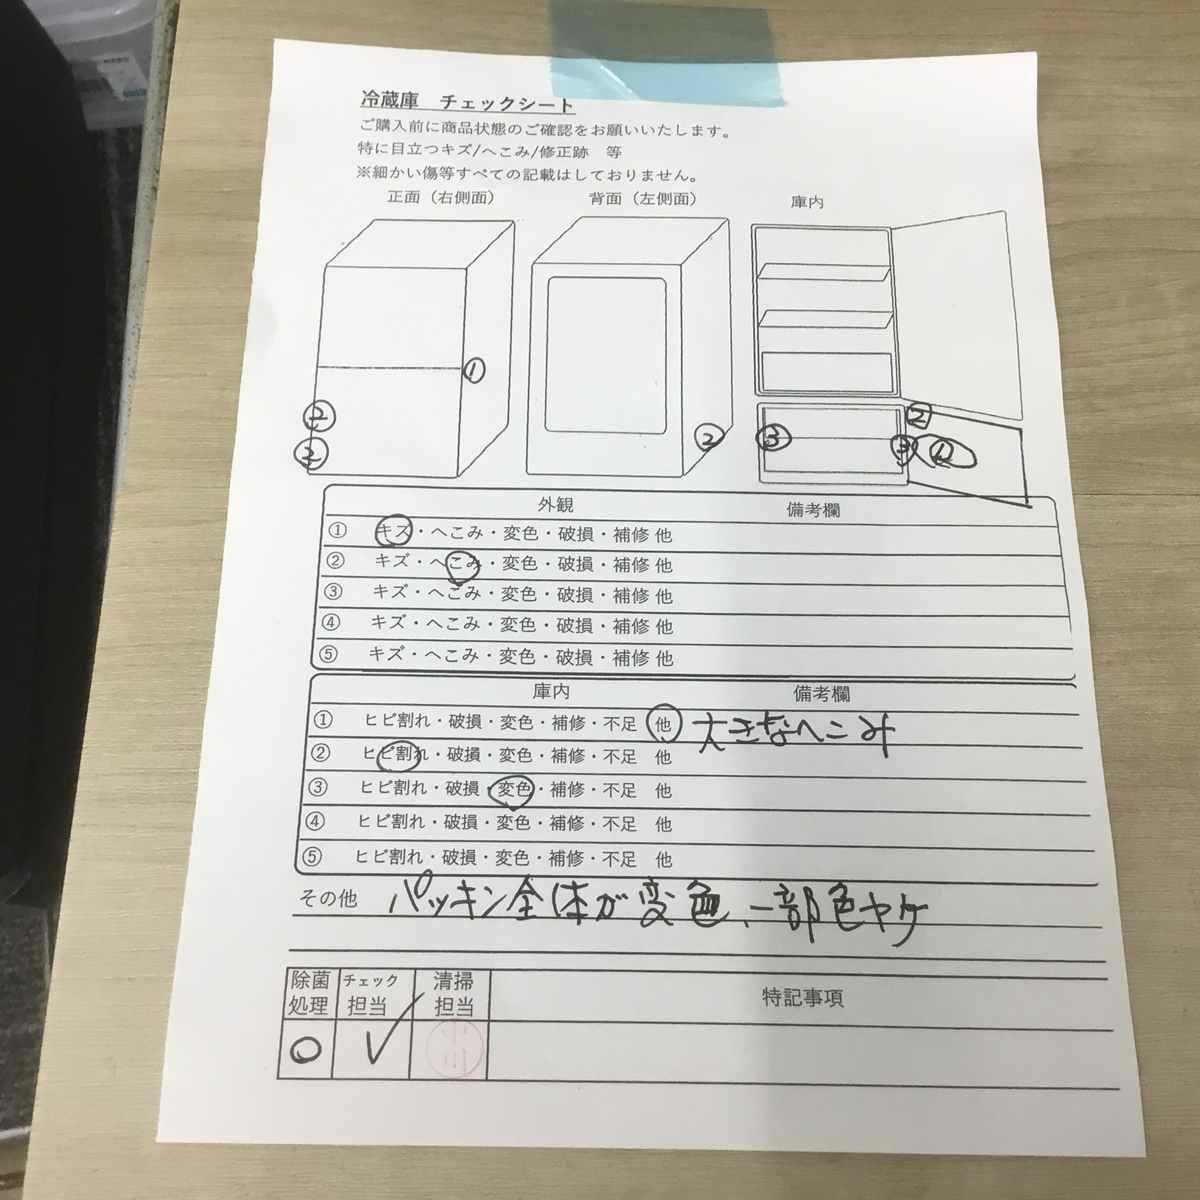 冷蔵庫 チェックシート
ご購入前に商品状態のご確認をお願いいたします。
特に目立つキズ/へこみ/修正跡 等
※細かい傷等すべての記載はしておりません。
正面（右側面） 背面（左側面） 庫内
①
②
②
②
②
③
③
①
外観 備考欄
① キズ・へこみ・変色・破損・補修 他
② キズ・へこみ・変色・破損・補修 他
③ キズ・へこみ・変色・破損・補修 他
④ キズ・へこみ・変色・破損・補修 他
⑤ キズ・へこみ・変色・破損・補修 他
庫内 備考欄
① ヒビ割れ・破損・変色・補修・不足 他 大きなへこみ
② ヒビ割れ・破損・変色・補修・不足 他
③ ヒビ割れ・破損・変色・補修・不足 他
④ ヒビ割れ・破損・変色・補修・不足 他
⑤ ヒビ割れ・破損・変色・補修・不足 他
その他 パッキン全体が変色、一部色ヤケ
除菌処理 チェック担当 清掃担当 特記事項